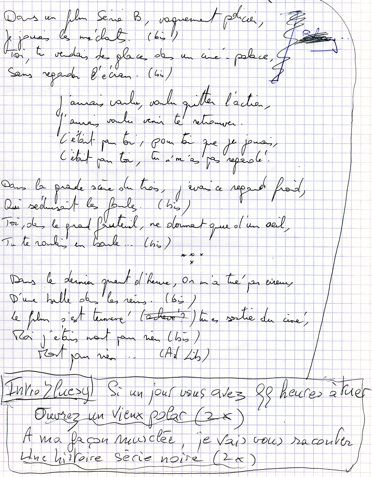 Dans un film Série B, vaguement policier,
Je jouais les méchants. (bis)
Toi, tu vendais des glaces dans un ciné-palace,
Sans regarder l'écran. (bis)
J'aurais voulu, voulu quitter l'action,
J'aurais voulu venir te retrouver.
C'était pour toi, pour toi que je jouais,
C'était pour toi, tu n'm'as pas regardé.
Dans la grande scène du trois, j'avais ce regard froid,
Qui séduisait les foules. (bis)
Toi, dans le grand fauteuil, ne dormant que d'un œil,
Tu te roulais en boule... (bis)
***
Dans le dernier quart d'heure, On m'a tué par erreur,
D'une balle dans les reins. (bis)
Le film s'est terminé tu es sortie du ciné,
Moi j'étais mort pour rien (bis)
Mort pour rien... (Ad Lib)
Intro Bluesy Si un jour vous avez 99 heures à tuer
Ouvrez un vieux polar (2x)
A ma façon musclée, je vais vous raconter
Une histoire série noire (2x)